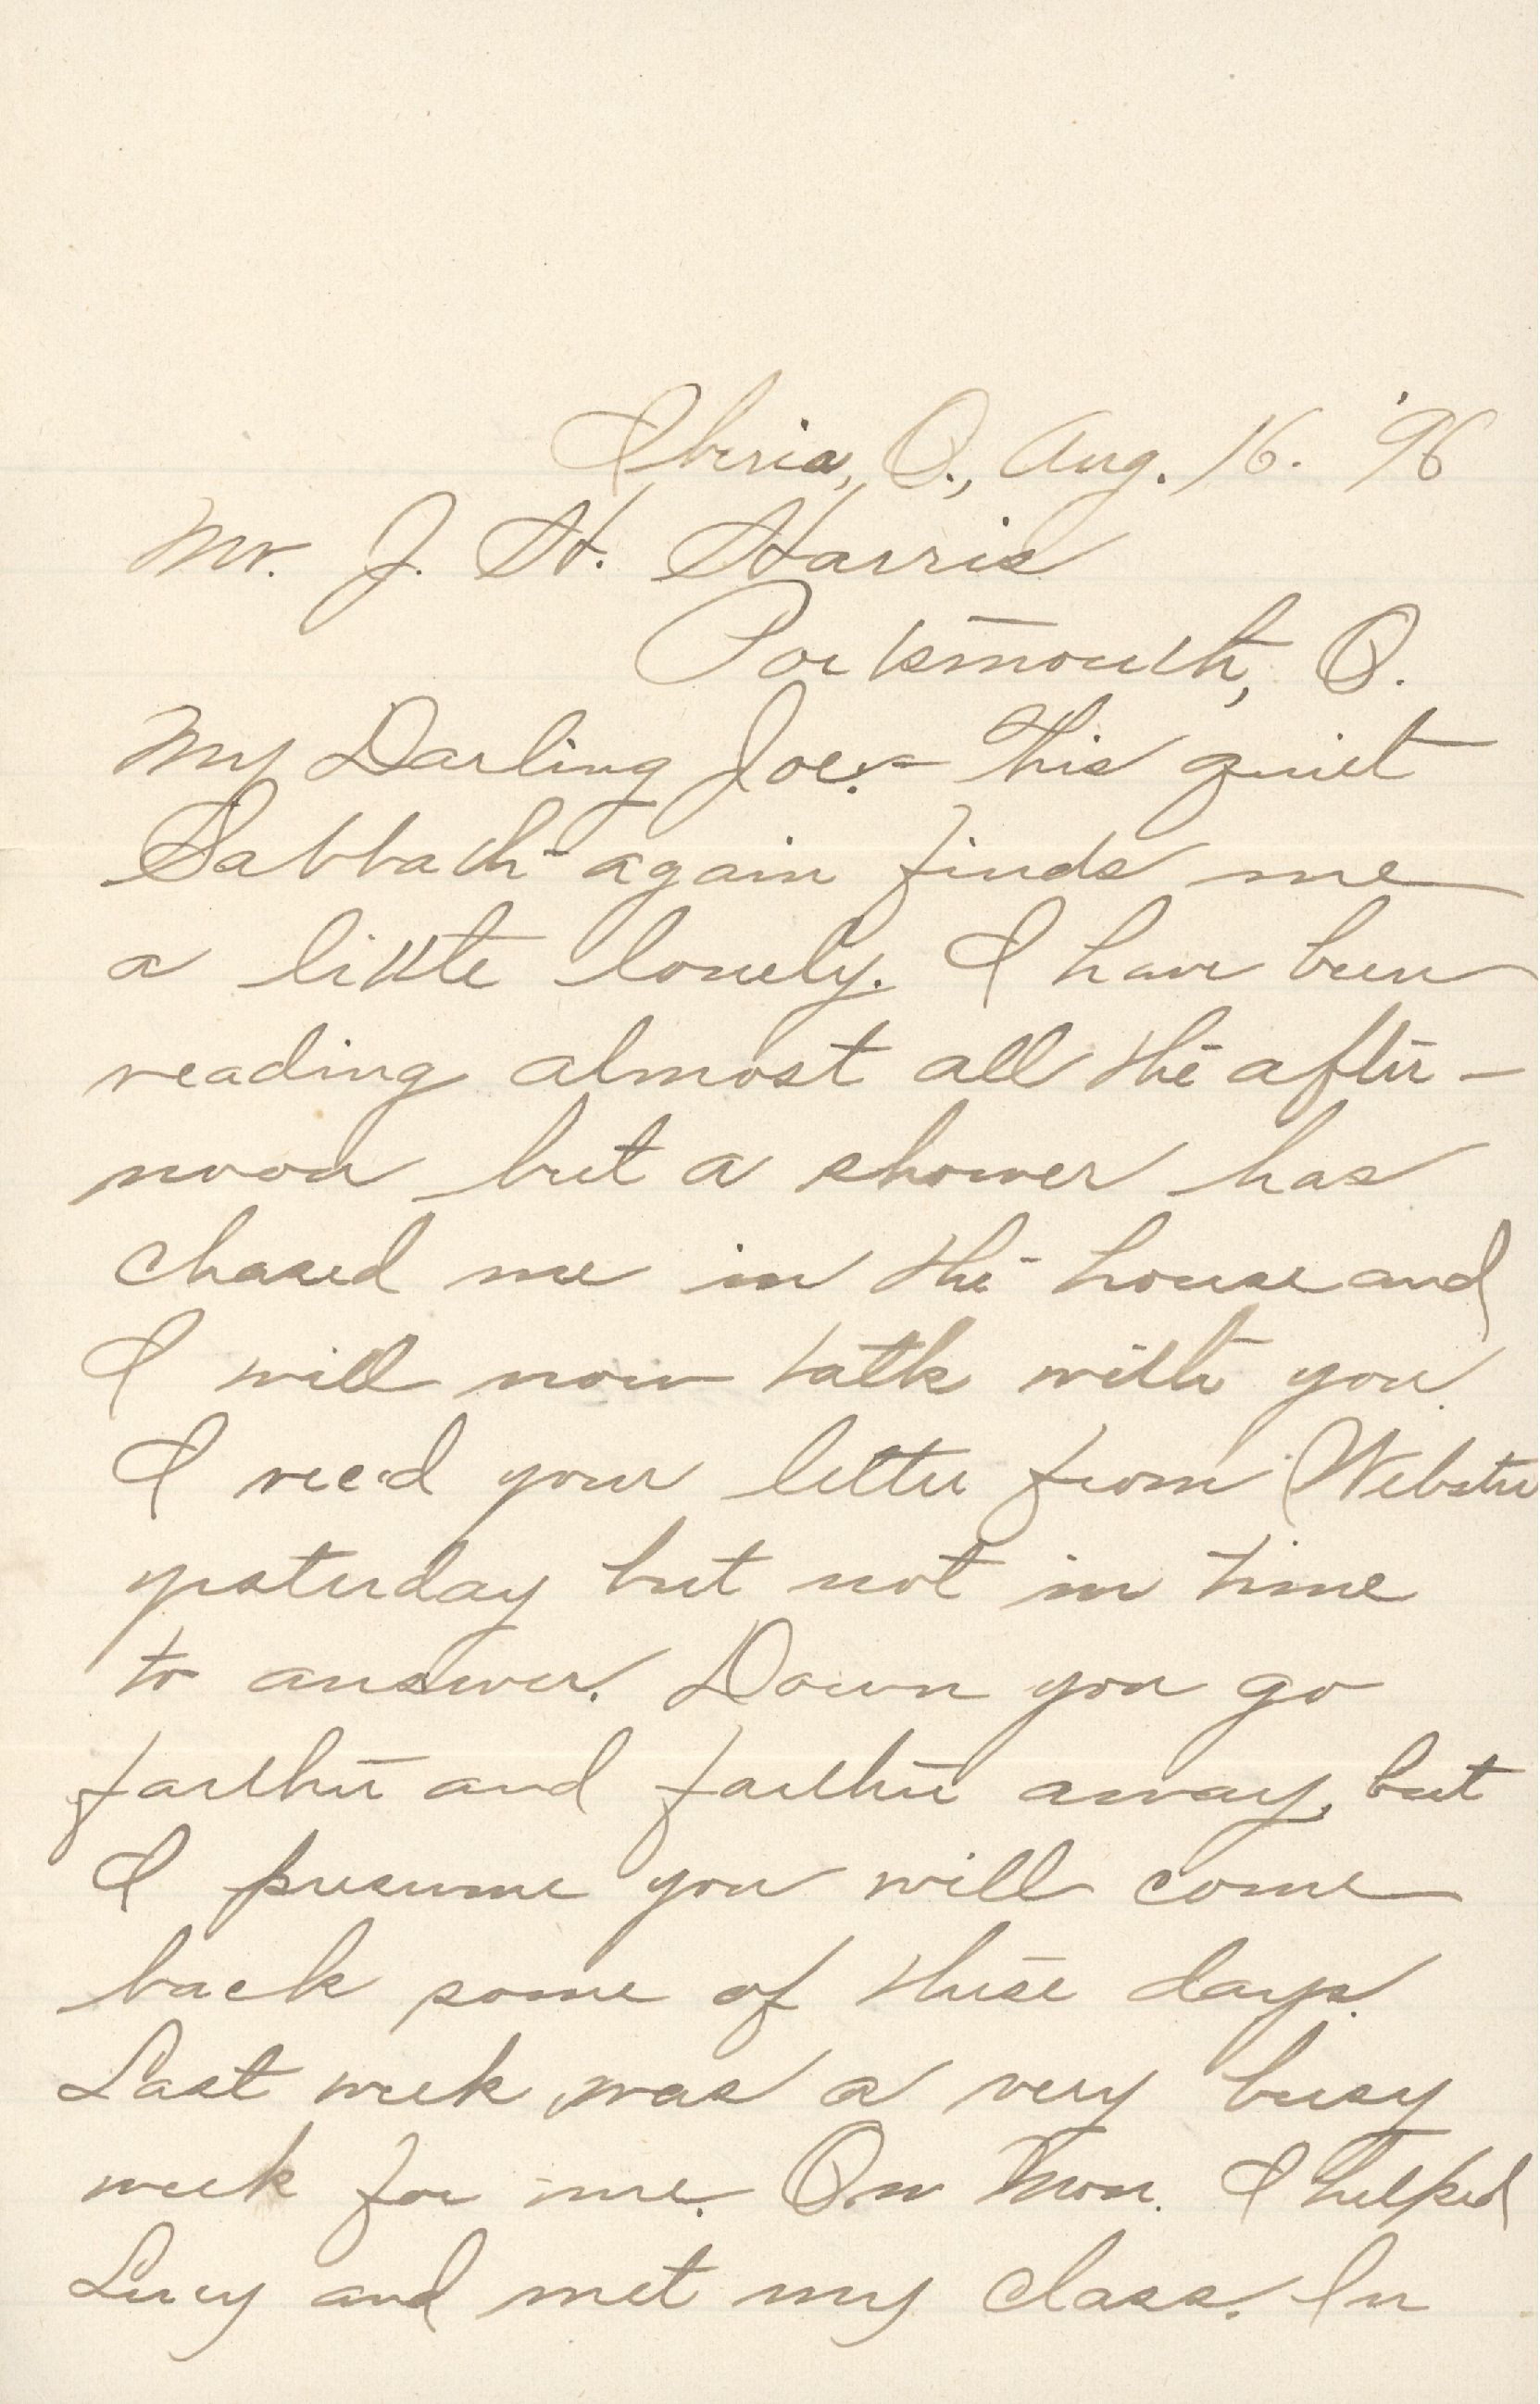 Iberia, O., Aug. 16. '96
Mr. J. H. Harris
Portsmouth, O.
My Darling Joe:- This quiet
Sabbath again finds me
a little lonely. I have been
reading almost all the after-
noon but a shower has
chased me in the house and
I will now talk with you.
I rec'd your letter from Webster
yesterday but not in time
to answer. Down you go
farther and farther away, but
I presume you will come
back some of these days.
Last week was a very busy
week for me. On Mon. I helped
Lucy and met my class. In